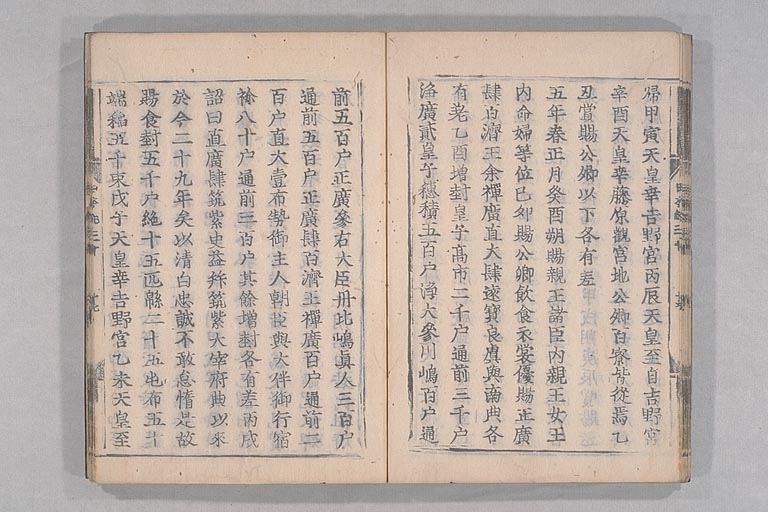 歸甲寅天皇幸吉野宮丙辰天皇至自吉野宮
辛酉天皇幸藤原觀宮地公卿百寮皆從焉乙
丑賞賜公卿以下各有差
五年春正月癸酉朔賜親王諸臣內親王女王
內命婦等位己卯賜公卿飲食衣裳優賜正廣
肆百濟王余禪廣直大肆遠寶良虞與南典各
有差乙酉增封皇子高市二千戶通前三千戶
淨廣貳皇子穗積五百戶淨大參川嶋百戶通
前五百戶正廣參右大臣丹比嶋真人三百戶
通前五百戶正廣肆百濟王禪廣百戶通前二
百戶直大壹布勢御主人朝臣與大伴御行宿
祢八十戶通前三百戶其餘增封各有差丙戌
詔曰直廣肆筑紫史益拜筑紫大宰府典以來
於今二十九年矣以清白忠誠不敢怠惰是故
賜食封五十戶絁十五匹緜二十五屯布五十
端稻五千束戊子天皇幸吉野宮乙未天皇至